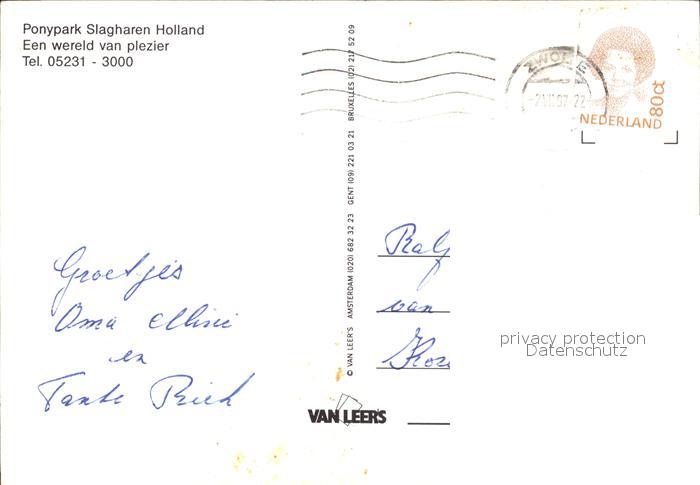 Ponypark Slagharen Holland
Een wereld van plezier
Tel. 05231 - 3000
© VAN LEER'S AMSTERDAM (020) 682 32 23 GENT (09) 221 03 21 BRUXELLES (02) 217 52 09
ZWOLLE
NEDERLAND
80ct
Groetjes
Oma
en
Tante Rieh
Ralf
van
privacy protection
Datenschutz
VAN LEER'S